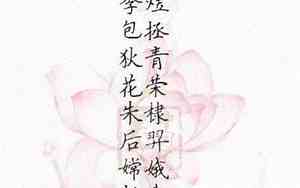 李煜
包拯
狄青
花荣
朱棣
后羿
嫦娥